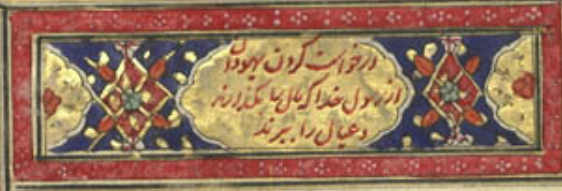 درخواست کردن یهودان
از رسول خدا که مال ما بگذارند
و عیال را ببرند